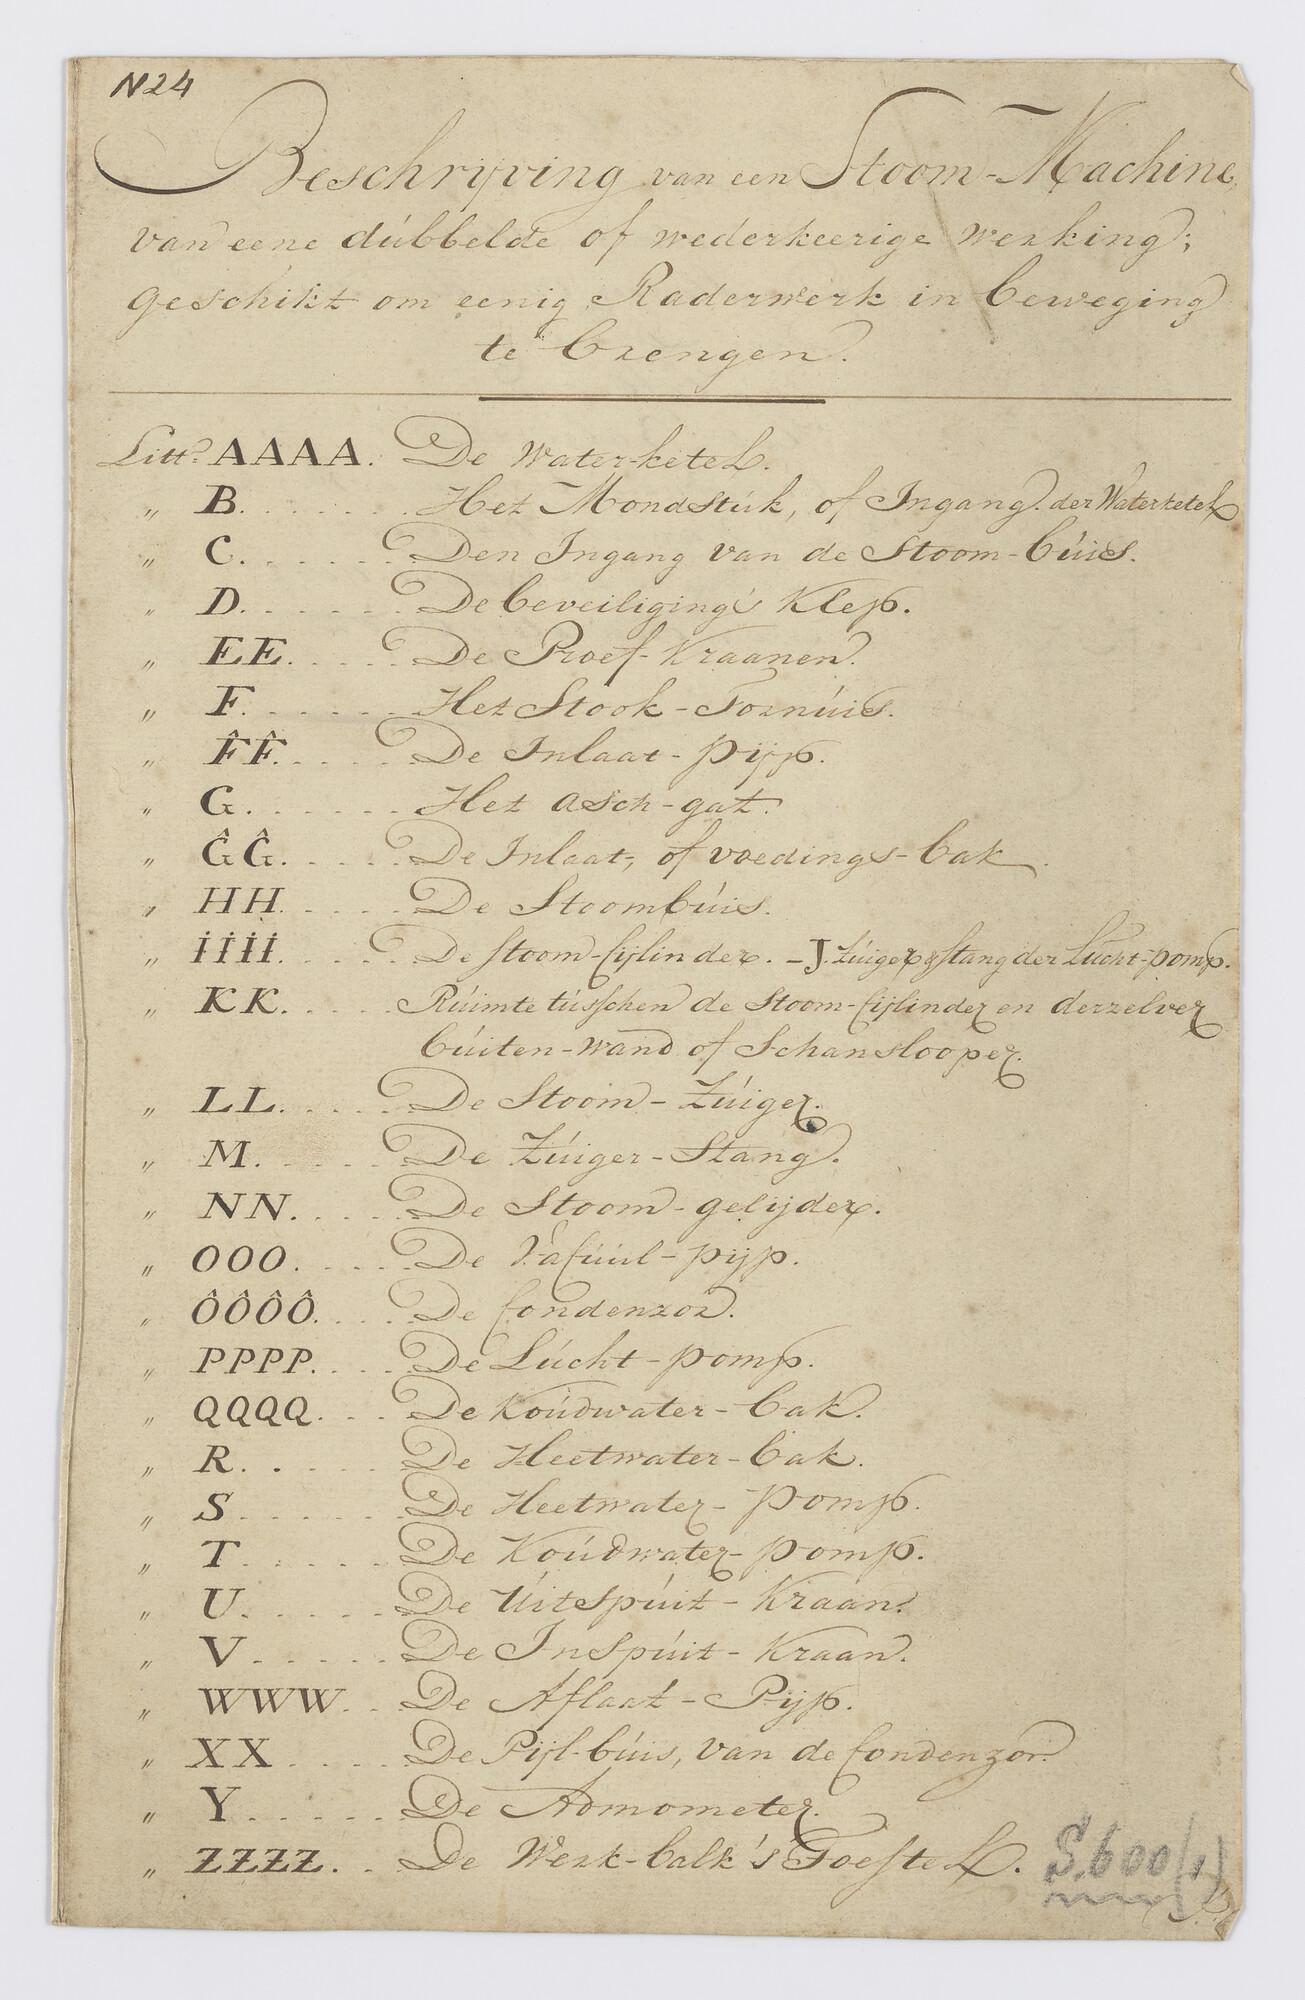 N24
Beschrijving van een Stoom-Machine,
van eene dúbbelde of wederkeerige werking;
geschikt om eenig Raderwerk in beweging
te brengen.
Litt.ª AAAA. De Water-ketel.
„ B. . . . . . . Het Mondstúk, of Ingang der Waterketel
„ C. . . . . . . Den Ingang van de Stoom-búis.
„ D. . . . . . . De beveiliging's Klep.
„ EE. . . . . . De Proef-Kraanen.
„ F. . . . . . . Het Stook-Fornúis.
„ F̂F̂. . . . . . De Inlaat-pijp.
„ G. . . . . . . Het Asch-gat.
„ ĜĜ. . . . . . De Inlaat-, of voedings-bak.
„ HH. . . . . . De Stoombúis.
„ İİİİ. . . . . . De Stoom-Cijlinder. – J. Zúiger stang der Lúcht-pomp.
„ KK. . . . . . Rúimte tússchen de Stoom-Cijlinder en derzelver
búiten-wand of Schanslooper.
„ LL. . . . . . De Stoom-Zúiger.
„ M. . . . . . De Zúiger-Stang.
„ NN. . . . . . De Stoom-gelijder.
„ OOO. . . . . De Vacúúl-pijp.
„ ÔÔÔÔ. . . . De Condenzor.
„ PPPP. . . . De Lúcht-pomp.
„ QQQQ. . . De Koúdwater-bak.
„ R. . . . . . De Heetwater-bak.
„ S. . . . . . De Heetwater-Pomp.
„ T. . . . . . De Koúdwater-pomp.
„ U. . . . . . De Úitspúit-Kraan.
„ V. . . . . . De Inspúit-Kraan.
„ WWW. . . De Aflaat-Pijp.
„ XX . . . . . De Pijl-búis, van de Condenzor.
„ Y. . . . . . De Admometer.
„ ZZZZ. . . De Werk-balk's Toestel.
S.600(1)